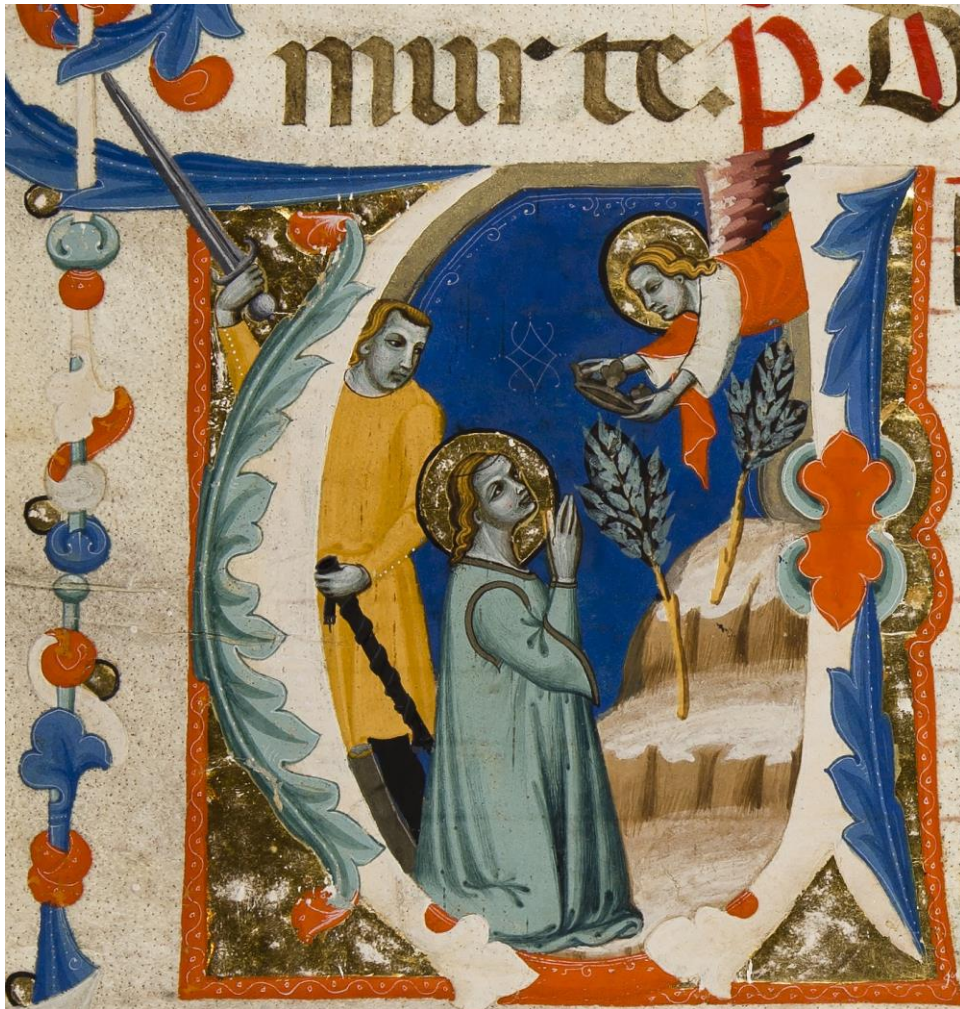 murte. p. D